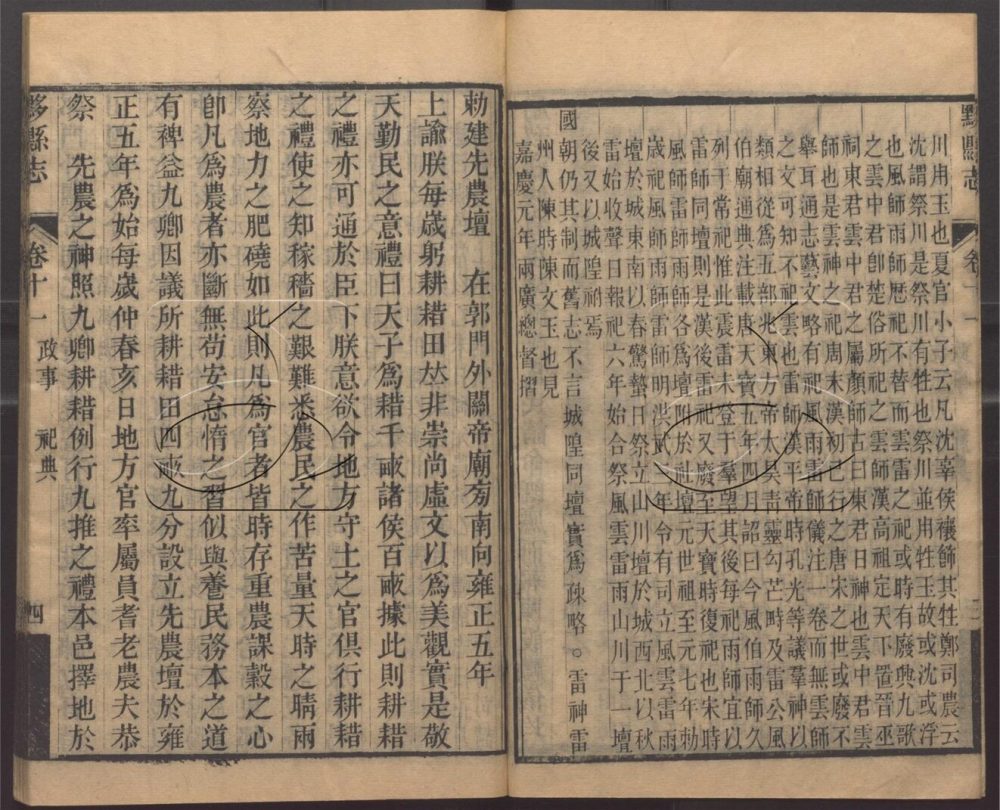 黟縣志
川用玉也夏官小子云凡沈辜侯禳飾其牲鄭司農云
沈謂祭川是祭川有牲也祭川並用牲玉故或沈或浮
也風師雨師歷祀不替而雲雷之祀或時有廢興九歌
之雲中君卽楚俗所祀之雲師漢高祖定天下置晉巫
祠東君雲中君之屬顏師古曰東君日神也雲中君雲
師也是雲神之祀周末漢初已行之唐宋之世或廢不
舉耳通志藝文略有祀風雨雷師儀注一卷而無雲師
之文可知不祀雲也雷師漢平帝時孔光等議羣神以
類相從爲五部兆東方帝太昊靑靈勾芒畤及雷公風
伯廟通典注載唐天寶五年四月詔曰今風伯雨師久
列于常祀惟此震雷未登于羣望其後每祀雨師宜以
雷師同壇則是漢後雷祀又廢至天寶時復祀也宋時
風師雷師雨師各爲壇附於社壇元世祖至元七年勅
歲祀風師雨師雷師明洪武二年令有司立風雲雷雨
壇於城東南以春驚蟄日祭立山川壇於城西北以秋
雷始收聲日報祀六年始合祭風雲雷雨山川于一壇
後又以城隍祔焉
國朝仍其制而舊志不言城隍同壇實爲疎略○雷神雷
州人陳時陳文玉也見
嘉慶元年兩廣總督摺
勅建先農壇　在郭門外關帝廟旁南向雍正五年
上諭朕每歲躬耕耤田並非崇尚虛文以爲美觀實是敬
天勤民之意禮曰天子爲耤千畝諸侯百畝據此則耕耤
之禮亦可通於臣下朕意欲令地方守土之官俱行耕耤
之禮使之知稼穡之艱難悉農民之作苦量天時之晴雨
察地力之肥磽如此則凡爲官者皆時存重農課穀之心
卽凡爲農者亦斷無苟安怠惰之習似與養民務本之道
有裨益九卿因議所耕耤田四畝九分設立先農壇於雍
正五年爲始每歲仲春亥日地方官率屬員耆老農夫恭
祭　先農之神照九卿耕耤例行九推之禮本邑擇地於
黟縣志　卷十一　政事　祀典　四